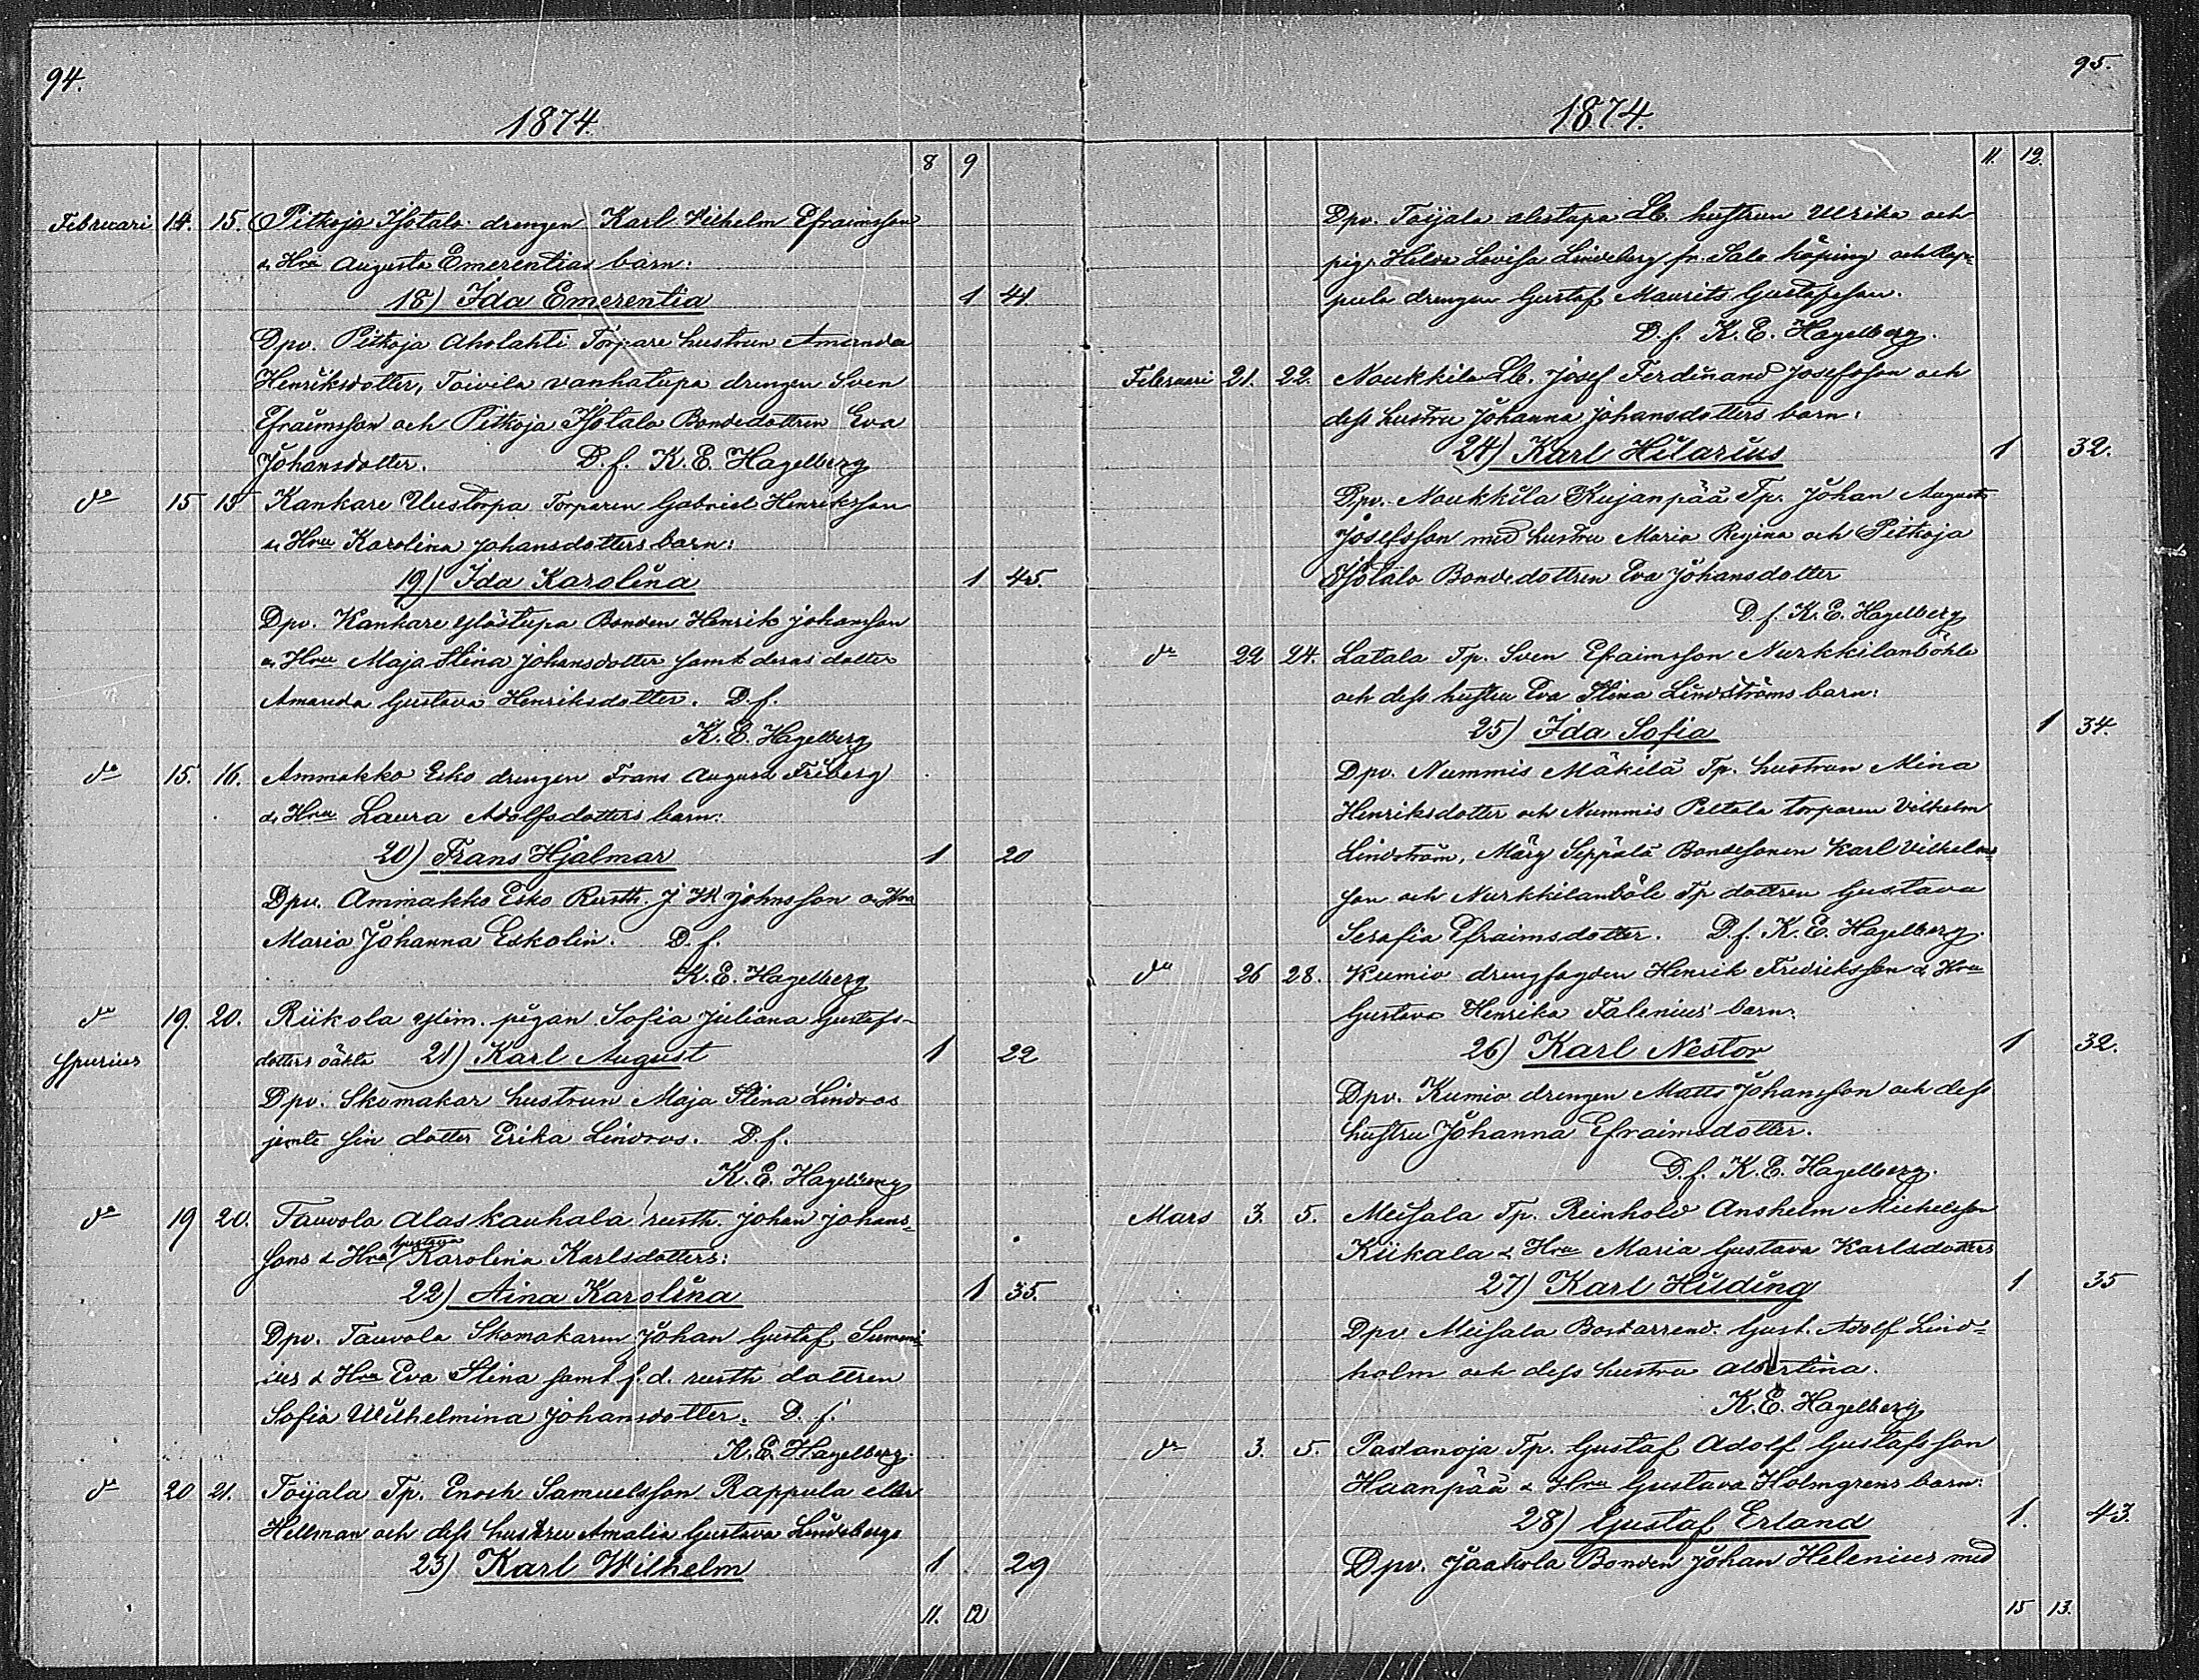 94.
1874.
8 9
Februari 14. 15. Pitkoja Isotalo drengen Karl Wilhelm Efraimsson
& Hru Augusta Emerentias barn:
18) Ida Emerentia 1 41.
Dpv. Pitkoja Aholahti Torpare hustrun Amanda
Henriksdotter, Toivila vanhatupa drengen Sven
Efraimsson och Pitkoja Isotalo Bondedottren Eva
Johansdotter. D.f. K.E. Hagelberg
do 15 15 Kankare Uustorpa Torparen Gabriel Henriksson
& Hru Karolina Johansdotters barn:
19) Ida Karolina 1 45.
Dpv. Kankare Ylöstupa Bonden Henrik Johansson
& Hru Maja Stina Johansdotter samt deras dotter
Amanda Gustava Henriksdotter. D.f.
K.E. Hagelberg
do 15. 16. Ammakko Esko drengen Frans August Friberg
& Hru Laura Adolfsdotters barn:
20) Frans Hjalmar 1 20
Dpv. Ammakko Esko Rusth. J W Johnsson & Hru
Maria Johanna Eskolin. D.f.
K.E. Hagelberg
do 19. 20. Riikola Ylim. pigan Sofia Juliana Gustafs-
Spurius dotters oäkta 21) Karl August 1 22
Dpv. Skomakar hustrun Maja Stina Lindros
jemte sin dotter Erika Lindros. D.f.
K.E. Hagelberg
do 19 20. Tauvola Alaskauhala rusth. Johan Johans-
sons & Hru Gustava Karolina Karlsdotters:
22) Aina Karolina 1 35.
Dpv. Tauvola Skomakaren Johan Gustaf
& Hru Eva Stina samt f.d. rusth dottren
Sofia Wilhelmina Johansdotter. D.f.
K.E. Hagelberg.
do 20 21. Toijala Tp. Enoch Samuelsson Rappula eller
Hellman och dess hustru Amalia Gustava Lindebergs
23) Karl Wilhelm 1 29
11. 12
95.
1874.
11. 12.
Dpv. Toijala alastupa Lb. hustrun Ulrika och
pig. Hilda Lovisa Lindeberg fr. Salo köping och Rap-
pula drengen Gustaf Maurits Gustafsson.
D.f. K.E. Hagelberg.
Februari 21. 22. Noukkila Lb. Josef Ferdinand Josefsson och
dess hustru Johanna Johansdotters barn:
24) Karl Hilarius 1 32.
Dpv. Noukkila Kujanpää Tp. Johan August
Josefsson med hustru Maria Regina och Pitkoja
Isotalo Bondedottren Eva Johansdotter
D.f. K.E. Hagelberg
do 22 24. Latala Tp. Sven Efraimsson Nurkkilanböhle
och dess hustru Eva Stina Lindströms barn:
25) Ida Sofia 1 34.
Dpv. Nummis Mäkilä Tp. hustrun Mina
Henriksdotter och Nummis Peltola torparen Vilhelm
Lindström, Märy Seppälä Bondesonen Karl Vilhelms-
son och Nurkkilanböle Tp dottren Gustava
Serafia Efraimsdotter. D.f. K.E. Hagelberg.
do 26 28. Kumio drengfogden Henrik Fredriksson & Hru
Gustava Henrika Falenius' barn:
26) Karl Nestor 1 32.
Dpv. Kumio drengen Matts Johansson och dess
hustru Johanna Efraimsdotter.
D.f. K.E. Hagelberg.
Mars 3. 5. Meisala Tp. Reinhold Anshelm Michelsson
Kiikala & Hru Maria Gustava Karlsdotters
27) Karl Huding 1 35
Dpv Meisala Bost.arrend. Gust. Adolf Lind-
holm och dess hustru Albertina.
K.E. Hagelberg
do 3. 5. Padanoja Tp. Gustaf Adolf Gustafsson
Haanpää & Hru Gustava Holmgrens barn:
28) Gustaf Erland 1. 43.
Dpv. Jaakola Bonden Johan Helenius med
15 13.